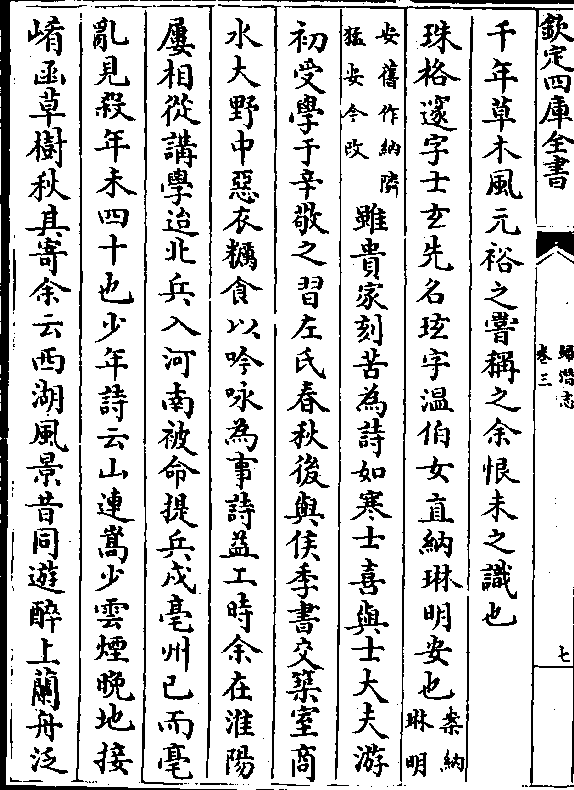 欽定四庫全書
歸潛志
卷三
七
千年草木風元裕之嘗稱之余恨未之識也
珠格邃字士玄先名玹字溫伯女直納琳明安也案納琳明
安舊作納隣猛安今改雖貴家刻苦為詩如寒士喜與士大夫游
初受學于辛敬之習左氏春秋後與侯季書交築室商
水大野中惡衣糲食以吟咏為事詩益工時余在淮陽
屢相從講學迨北兵入河南被命提兵戍亳州已而亳
亂見殺年未四十也少年詩云山連嵩少雲煙晚地接
崤函草樹秋其寄余云西湖風景昔同遊醉上蘭舟泛